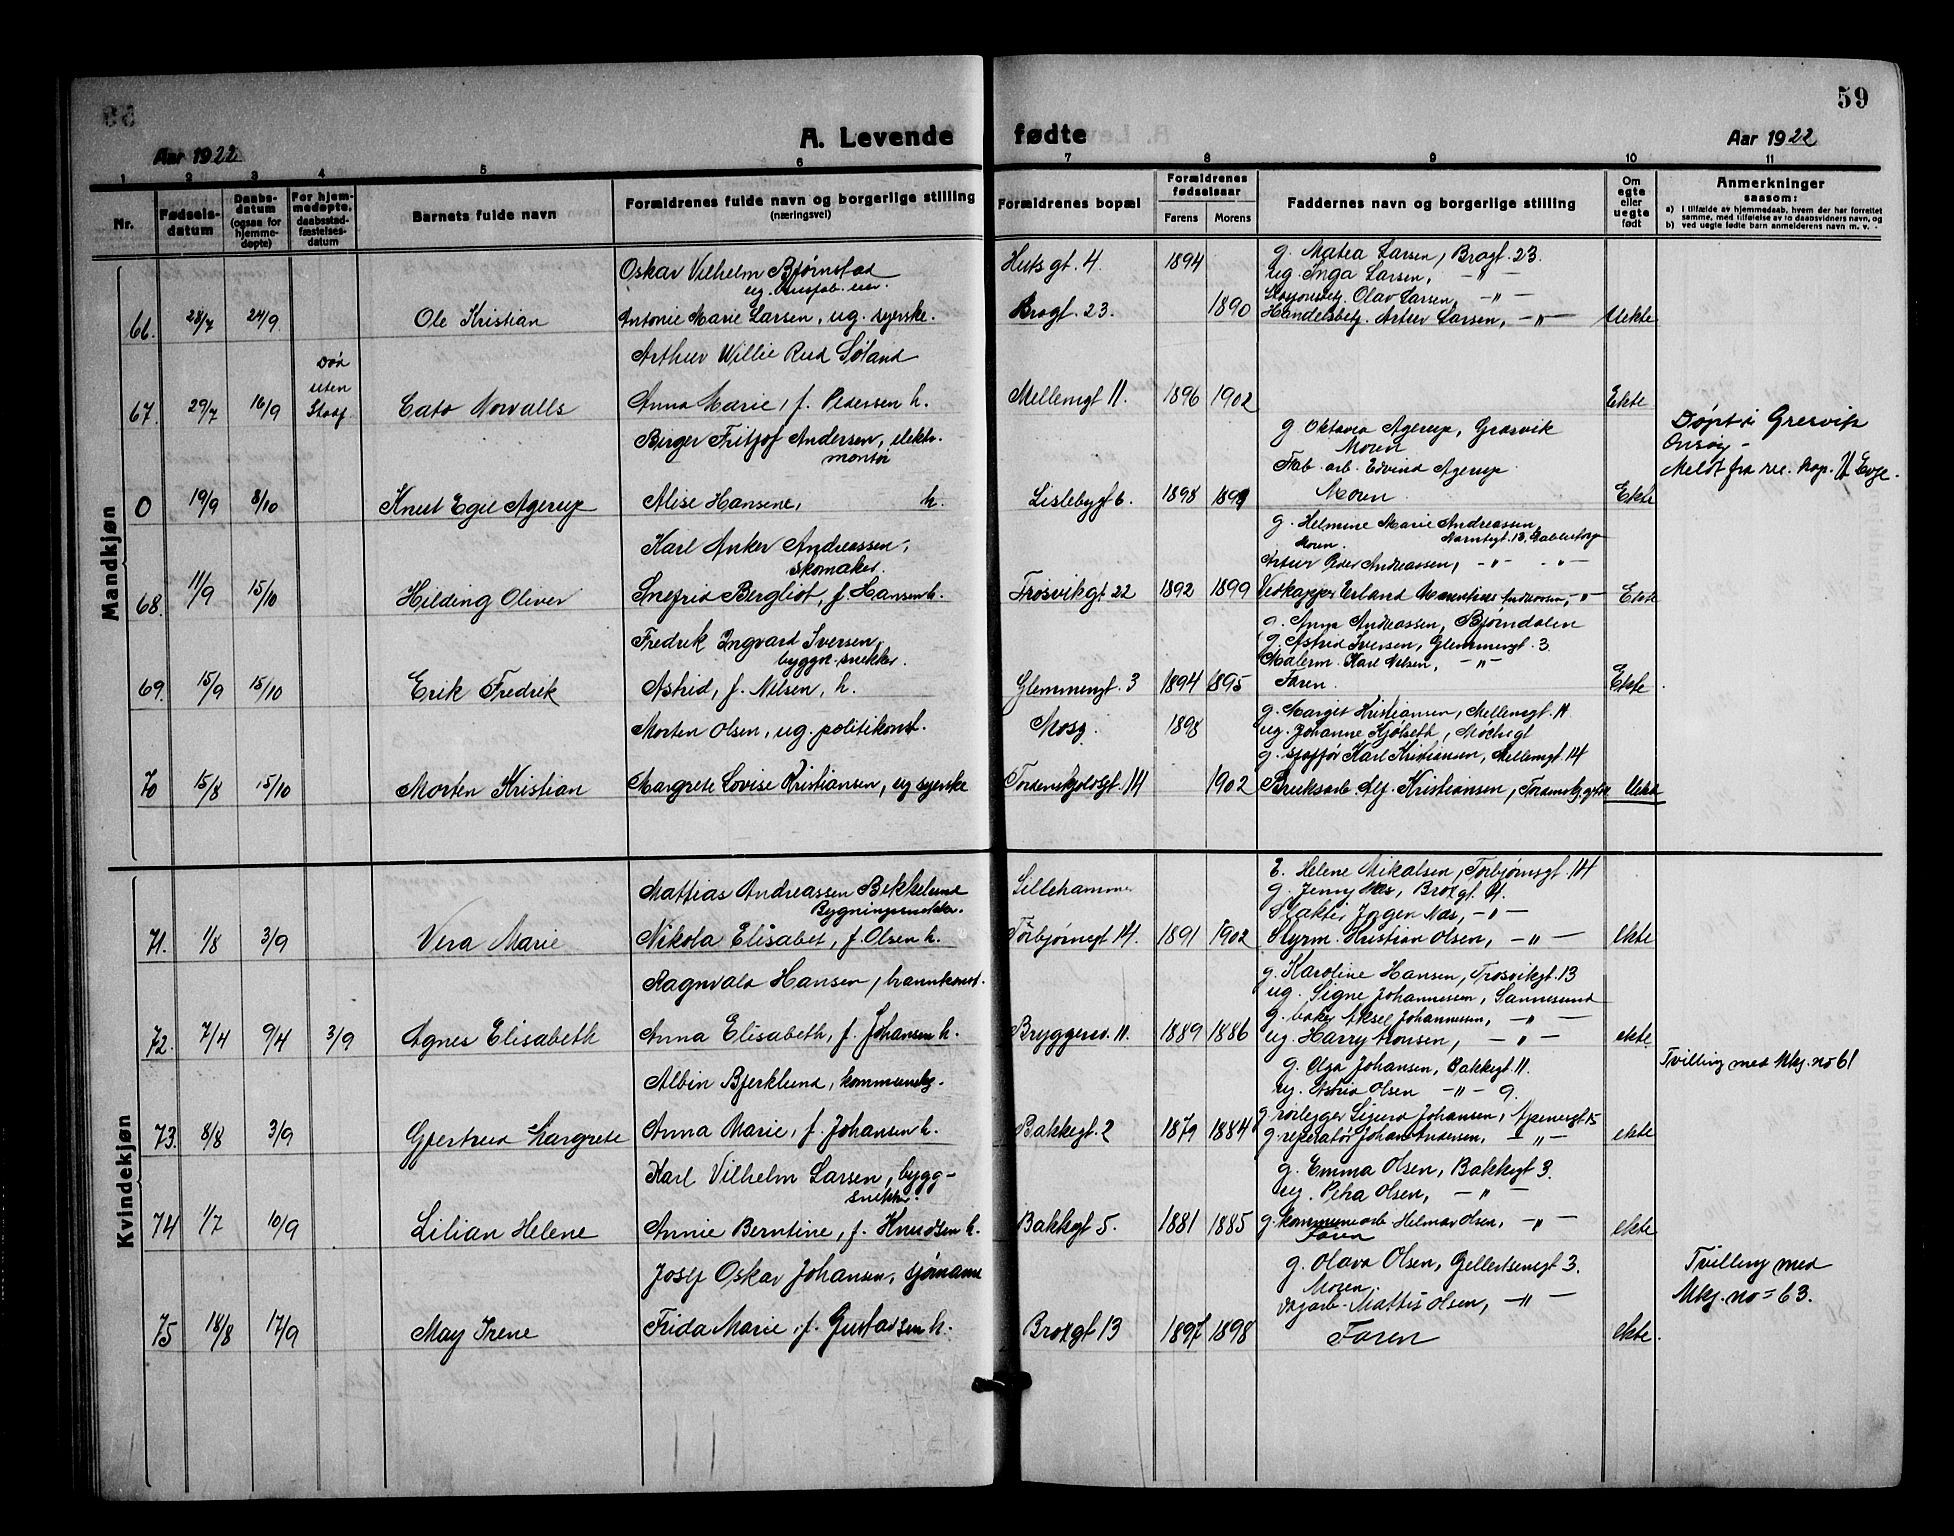 59
A. Levende fødte
Aar 1922
Aar 1922
1 2 3 4 5 6 7 8 9 10 11
Nr.
Fødsels-
datum
Daabs-
datum
(ogsaa for
hjemme-
døpte)
For hjem-
medøpte,
daabsstad-
fæstelses-
datum
Barnets fulde navn
Forældrenes fulde navn og borgerlige stilling
(næringsvei)
Forældrenes bopæl
Forældrenes
fødselsaar
Farens Morens
Faddernes navn og borgerlige stilling
Om
egte
eller
uegte
født
Anmerkninger
saasom:
a) I tilfælde av hjemmedaab, hvem der har forrettet
samme, med tilføielse av to daabsvidners navn, og
b) ved uegte fødte barn anmelderens navn m. v.
Mandkjøn
Oskar Vilhelm Bjørnstad Huts gt. 4. 1894
g. Matea Larsen, Brogt. 23.
ug. Inga Larsen, — " —
Olav Larsen, — " —
66. 28/7 24/9 Ole Kristian Antonie Marie Larsen, ug. syerske. Brogt. 23. 1890 Handelsbetj. Artur Larsen, — " — Uekte
Arthur Willie Rud Søland
Død
uten
67. 29/7 16/9 Cato Norvalls Anna Marie, f. Pedersen h. Mellemgt 11. 1896 1902 Ekte
Birger Fritjof Andersen, elektr.
montør
g. Oktavia Agerup, Gresvik
Moren
Fab. arb. Edvind Agerup.
Døpt i Gresvik
Onsøy -
Meldt fra res. kap.
0 19/9 8/10 Knut Egil Agerup Alise Hansine, h. Lislebygt 6. 1898 1899 Moren Ekte
Karl Anker Andreassen,
skomaker.
g. Helmine Marie Andreassen
Moren.
Artur Peder Andreassen, — " — — " —
68. 11/9 15/10 Hilding Oliver Snefrid Bergliot, f. Hansen h. Trosvikgt 22 1892 1899 Vedkapper Erland Andreassen, — " — Ekte
Fredrik Ingvard Iversen,
bygge. snekker.
g. Anna Andreassen, Bjørndalen
g. Astrid Iversen, Glemmengt. 3.
Malerm. Karl Nilsen, — " —
69. 15/9 15/10 Erik Fredrik Astrid, f. Nilsen, h. Glemmengt. 3 1894 1895 Faren. Ekte
Morten Olsen, ug. politikonst. Moss. 1898
g. Margit Kristiansen, Mellemgt. 11
ug. Johanne Kjølseth,
g. Karl Kristiansen, Mellemgt 14
70 15/8 15/10 Morten Kristian Margrete Lovise Kristiansen, ug syerske Tordenskjoldsgt. 14 1902 Bruksarb. Alf. Kristiansen, Uekte
Kvindekjøn
Mattias Andreassen Bekkelund
Bygningssnekker.
Lillehammer
E. Helene Mikalsen, Torbjørnsgt. 14
g. Jenny Næs, Brogt. 4.
Slakter Jørgen Næs, — " —
71. 1/8 3/9 Vera Marie Nikola Elisabet, f. Olsen h. Torbjørnsgt 14. 1891 1902 Styrm. Kristian Olsen, — " — ekte
Ragnvald Hansen, brannkonst.
g. Karoline Hansen, Trosvikgt. 13
ug. Signe Johannesen, Sannesund
g. baker Aksel Johannesen, — " —
72. 7/4 9/4 3/9 Agnes Elisabeth Anna Elisabeth, f. Johansen h. Bryggerv. 11. 1889 1886 ug. Harry Aronsen, — " — ekte.
Tvilling med Mkj. no 61
Albin Bjerklund, kommunebg.
g. Olga Johansen, Bakkegt. 11.
ug. Astrid Olsen — " — 9.
g. rørlegger Sigurd Johansen, Apenesgt. 5
73. 8/8 3/9 Gjertrud Margrete Anna Marie, f. Johansen h. Bakkegt. 2 1879 1884 g. reperatør Johan Andersen, — " — ekte
Karl Vilhelm Larsen, bygg-
snekker.
g. Emma Olsen, Bakkegt 3.
ug. Petra Olsen, — " —
74 1/7 10/9 Lilian Helene Annie Berntine, f. Knudsen h. Bakkegt 5. 1881 1885 g. kommunearb Helmar Olsen, — " — ekte
Faren
Josef Oskar Johansen, sjømann
g. Olava Olsen, Gellertsensgt 3.
Moren,
dagarb. Mattis Olsen, — " —
Tvilling med
Mkj. no = 63.
75 18/8 17/9 May Irene Frida Marie, f. Gustavsen h. Brogt 13 1897 1898 Faren ekte.